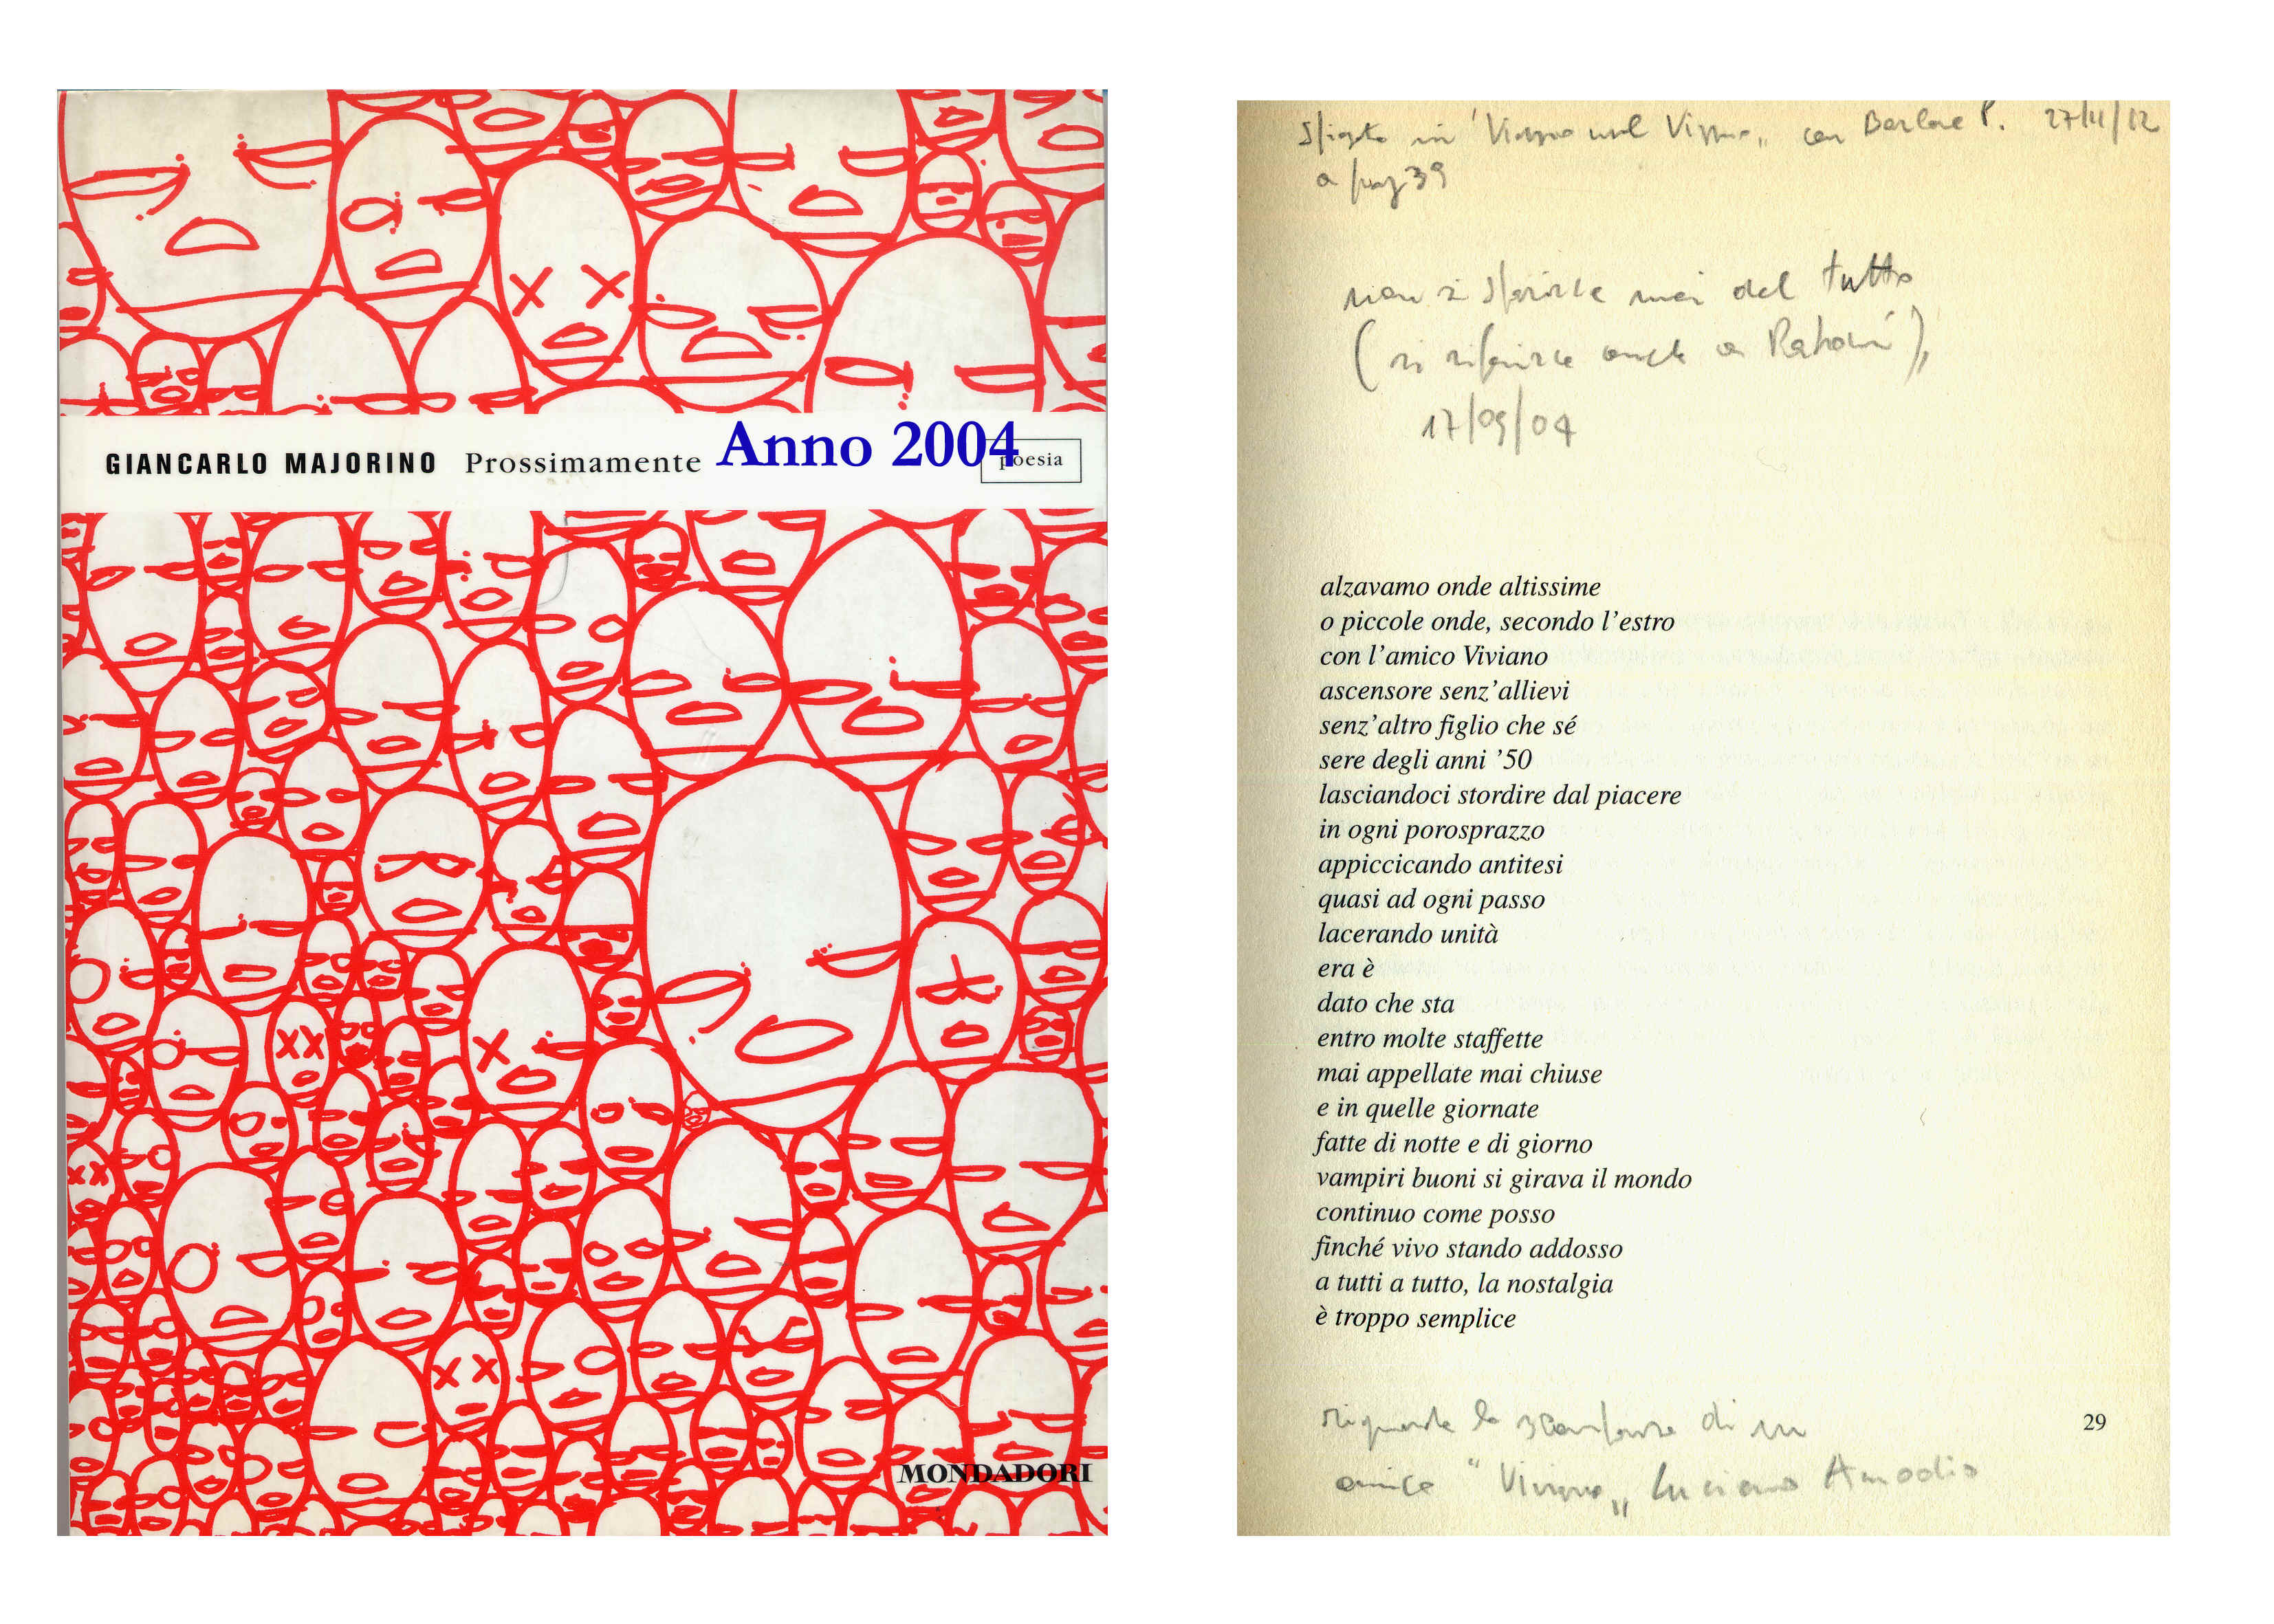 GIANCARLO MAJORINO Prossimamente Anno 2004 poesia
MONDADORI
in con P. 27/11/12
a pag 39
non si sparisce mai del tutto
(si riferisce anche a
17/09/04
alzavamo onde altissime
o piccole onde, secondo l'estro
con l'amico Viviano
ascensore senz'allievi
senz'altro figlio che sé
sere degli anni '50
lasciandoci stordire dal piacere
in ogni porosprazzo
appiccicando antitesi
quasi ad ogni passo
lacerando unità
era è
dato che sta
entro molte staffette
mai appellate mai chiuse
e in quelle giornate
fatte di notte e di giorno
vampiri buoni si girava il mondo
continuo come posso
finché vivo stando addosso
a tutti a tutto, la nostalgia
è troppo semplice
riguarda la scomparsa di un
amico "Viviano" Luciano Amodio
29